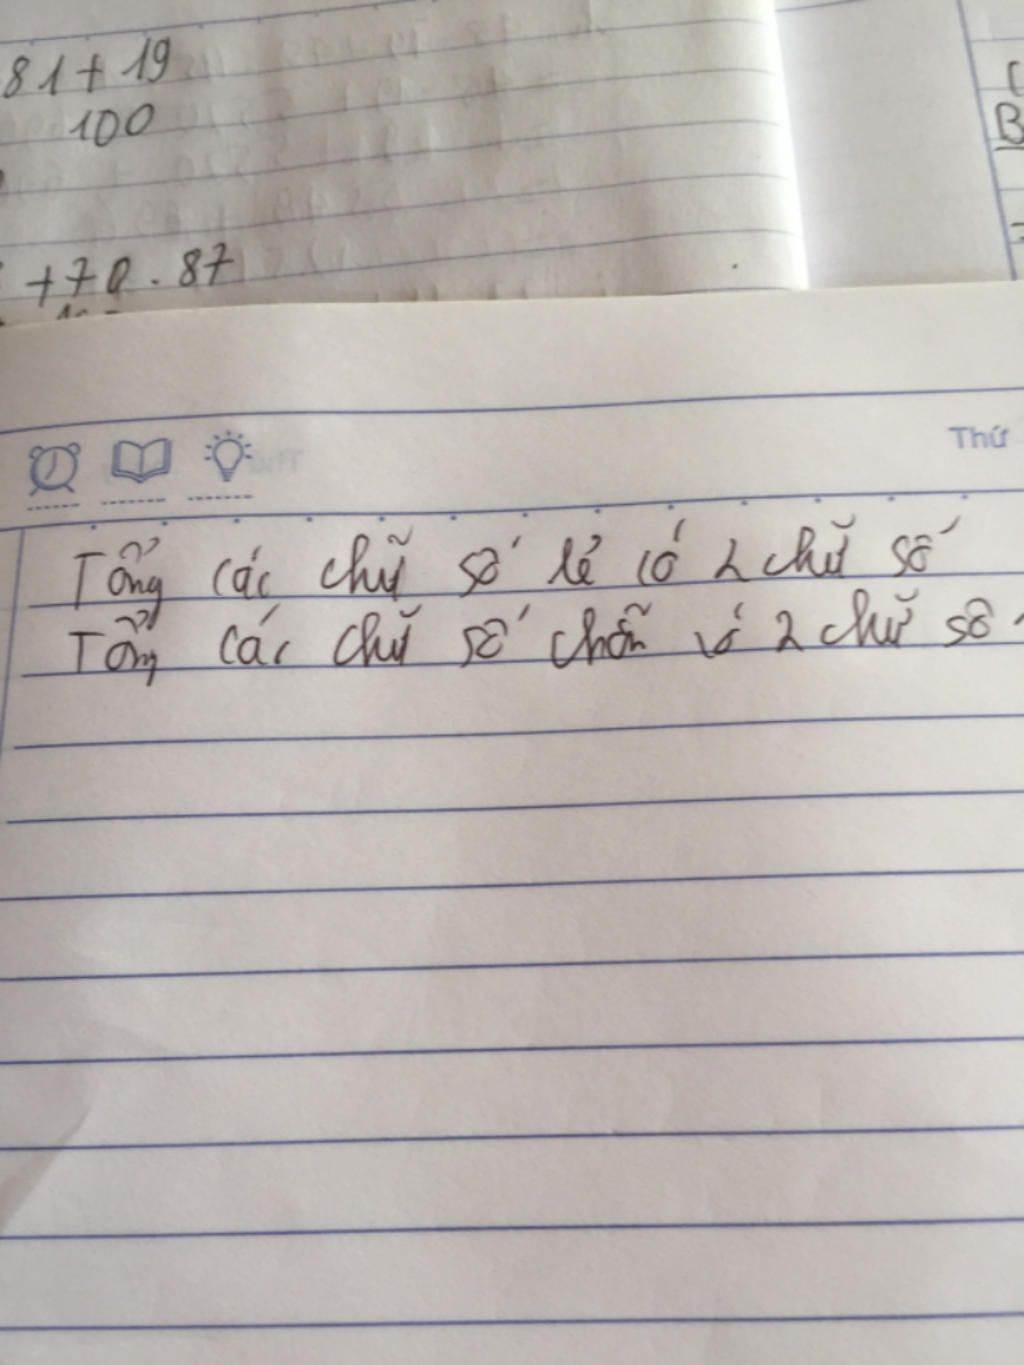 81+19
100
B
+70.87
Thứ
Tổng các chữ số lẻ có 2 chữ số
Tổng các chữ số chẵn có 2 chữ số